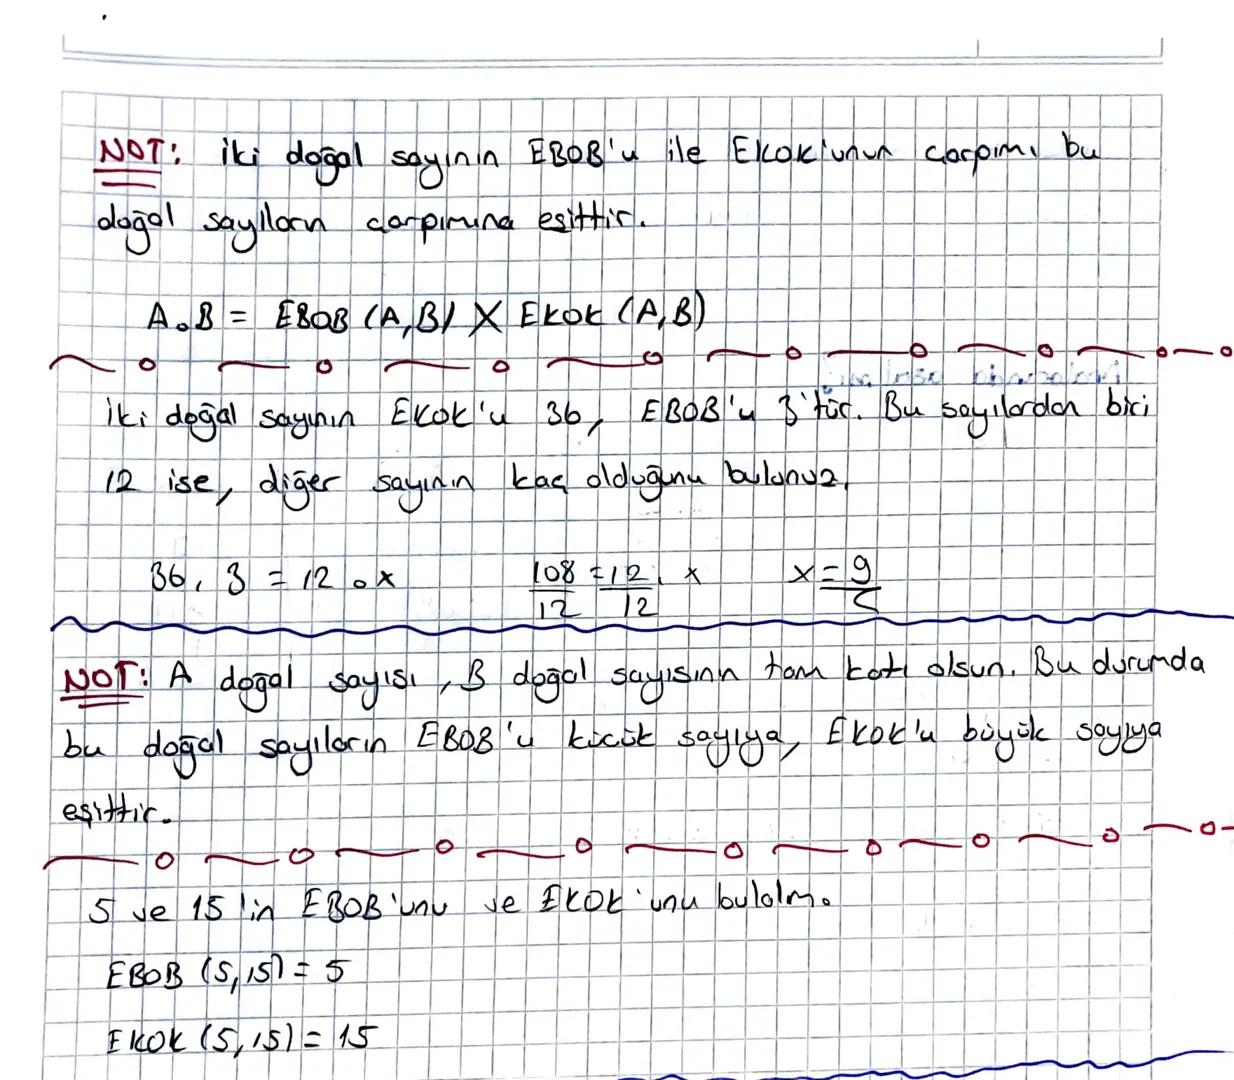 NOT: iki doğal sayının EBOB'u ile EKOK'unun çarpımı bu
doğal sayıların çarpımına eşittir.
A.B = EBOB (A,B) X EKOK (A,B)
İki doğal sayının EKOK'u 36, EBOB'u 3'tür. Bu sayılardan biri
12 ise, diğer sayının kaç olduğunu bulunuz.
36 . 3 = 12 . x 108/12 = 12 . x/12 x = 9
NOT: A doğal sayısı, B doğal sayısının tam katı olsun. Bu durumda
bu doğal sayıların EBOB'u küçük sayıya, EKOK'u büyük sayıya
eşittir.
5 ve 15'in EBOB'unu ve EKOK'unu bulalım.
EBOB (5,15) = 5
EKOK (5,15) = 15